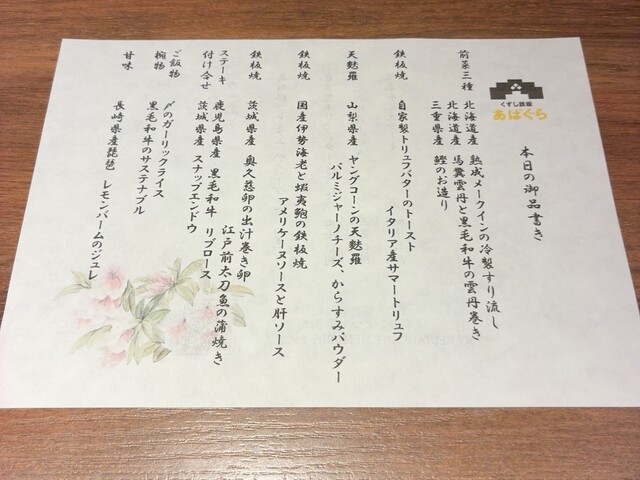 本日の御品書き
くずし鉄板
あばぐら
前菜三種 北海道産 熟成メークインの冷製すり流し
北海道産 馬糞雲丹と黒毛和牛の雲丹巻き
三重県産 鰹のお造り
鉄板焼 自家製トリュフバターのトースト
イタリア産サマートリュフ
天麩羅 山梨県産 ヤングコーンの天麩羅
パルミジャーノチーズ、からすみパウダー
鉄板焼 国産伊勢海老と蝦夷鮑の鉄板焼
アメリケーヌソースと肝ソース
鉄板焼 茨城県産 奥久慈卵の出汁巻き卵
江戸前太刀魚の蒲焼き
ステーキ 鹿児島県産 黒毛和牛 リブロース
付け合せ 茨城県産 スナップエンドウ
ご飯物 〆のガーリックライス
椀物 黒毛和牛のサステナブル
甘味 長崎県産琵琶 レモンバームのジュレ